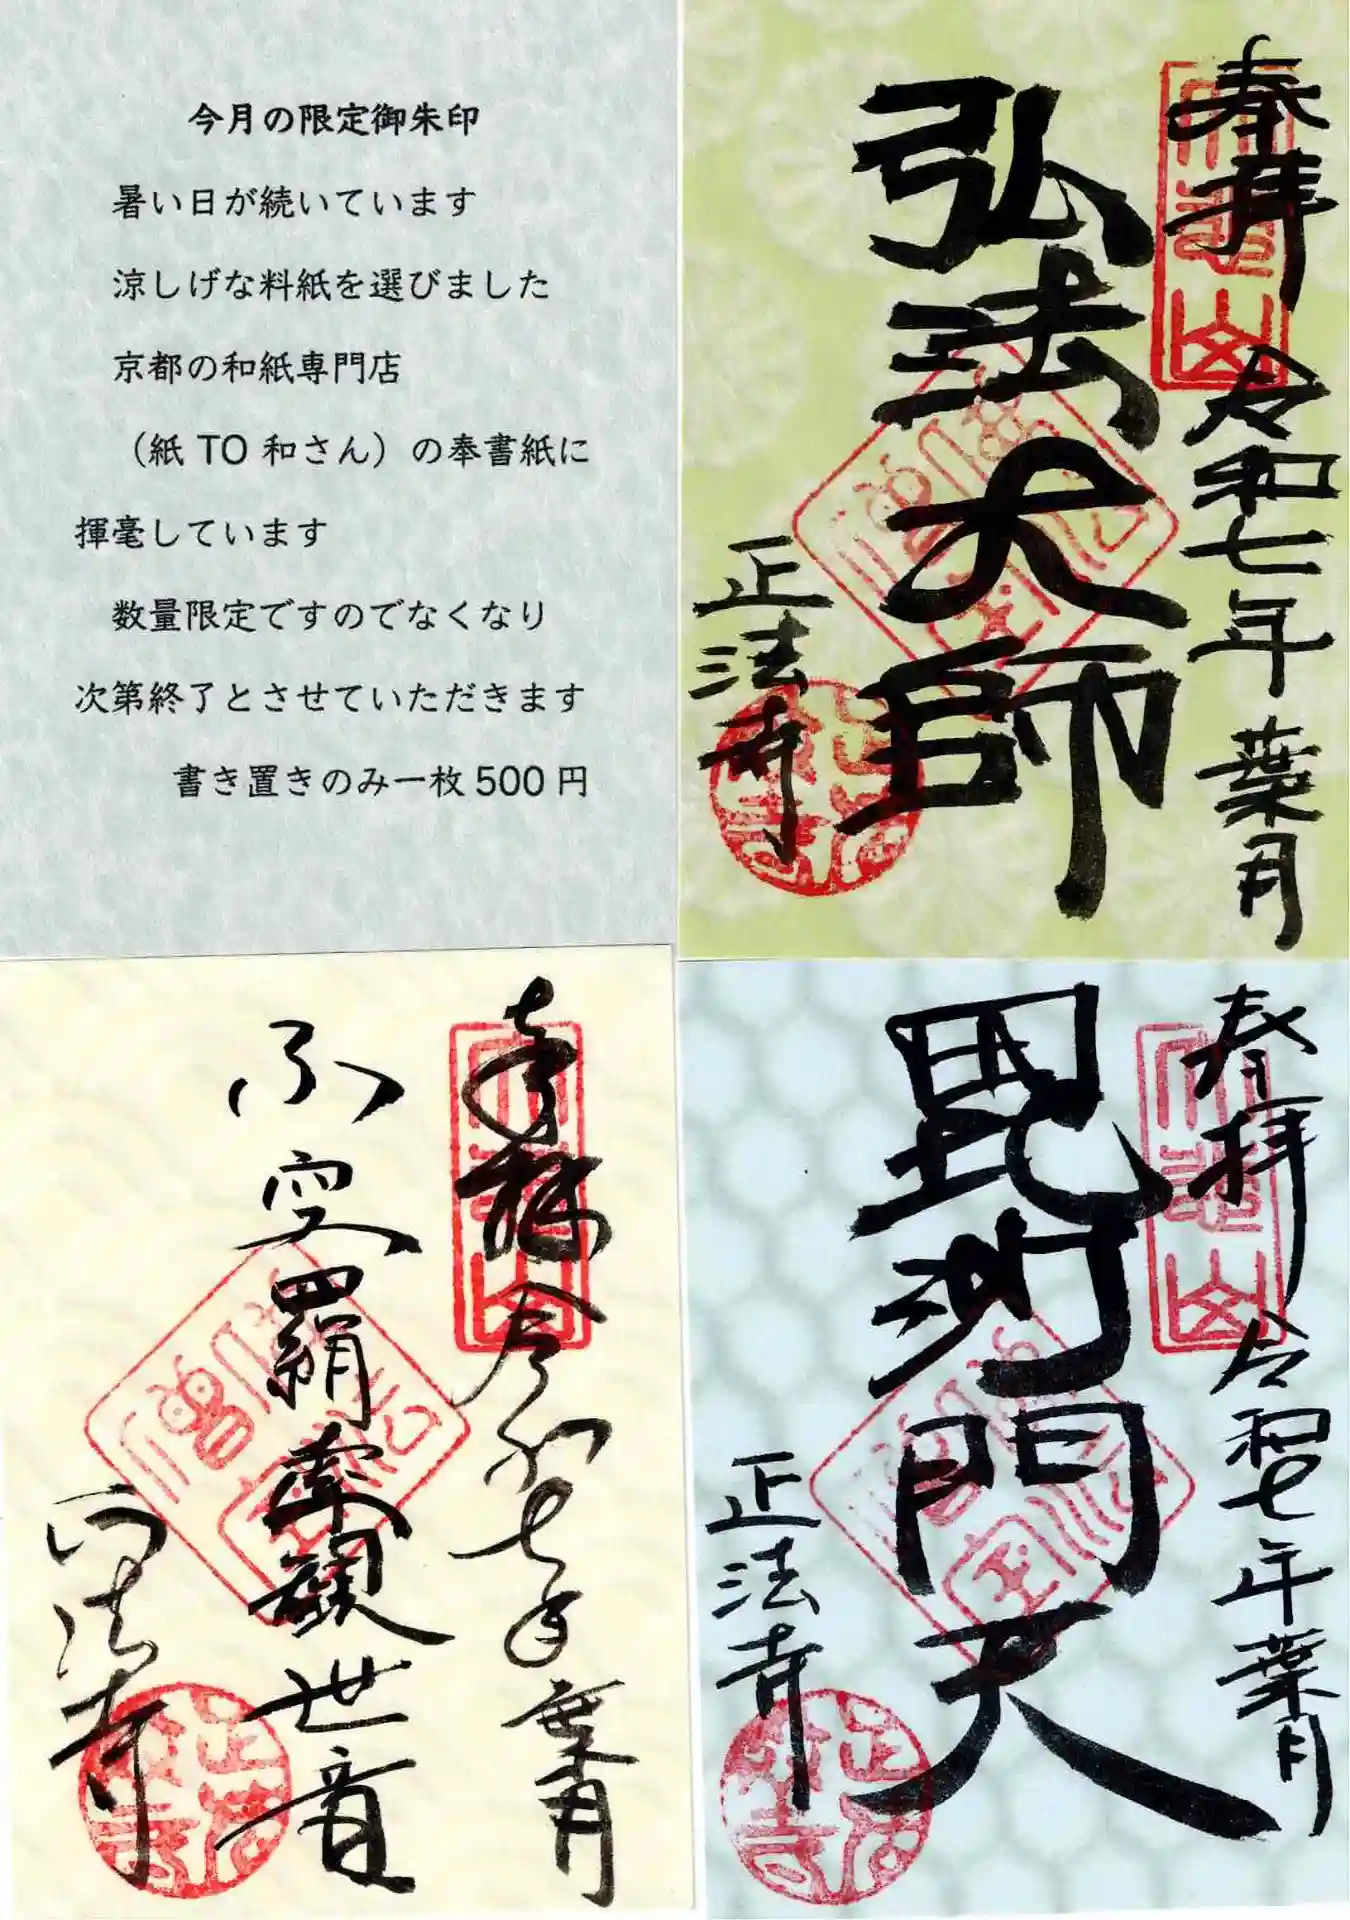 今月の限定御朱印
暑い日が続いています
涼しげな料紙を選びました
京都の和紙専門店
（紙 TO 和さん）の奉書紙に
揮毫しています
数量限定ですのでなくなり
次第終了とさせていただきます
書き置きのみ一枚 500 円
奉拝 令和七年 葉月
弘法大師
正法寺
奉拝 令和七年 葉月
不空羂索観世音
正法寺
奉拝 令和七年 葉月
毘沙門天
正法寺